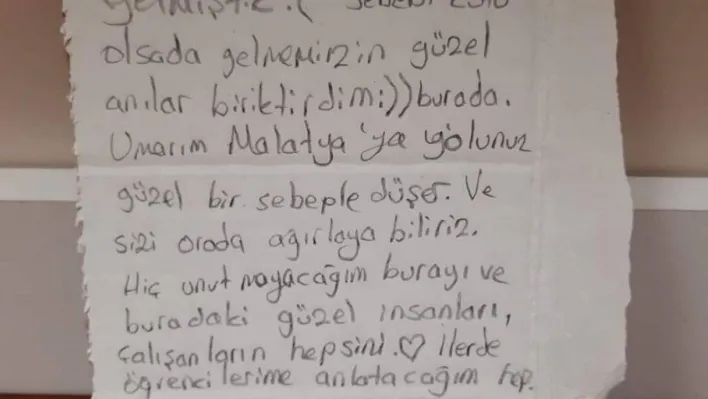 gelmiştiz :( Sebebi
olsada gelmemizin güzel
anılar biriktirdim:))burada.
Umarım Malatya'ya yolunuz
güzel bir sebeple düşer. Ve
sizi orada ağırlaya biliriz.
Hiç unut mayacağım burayı ve
buradaki güzel insanları,
çalışanların hepsini.♡ İlerde
öğrenci lerime anlatacağım hep.